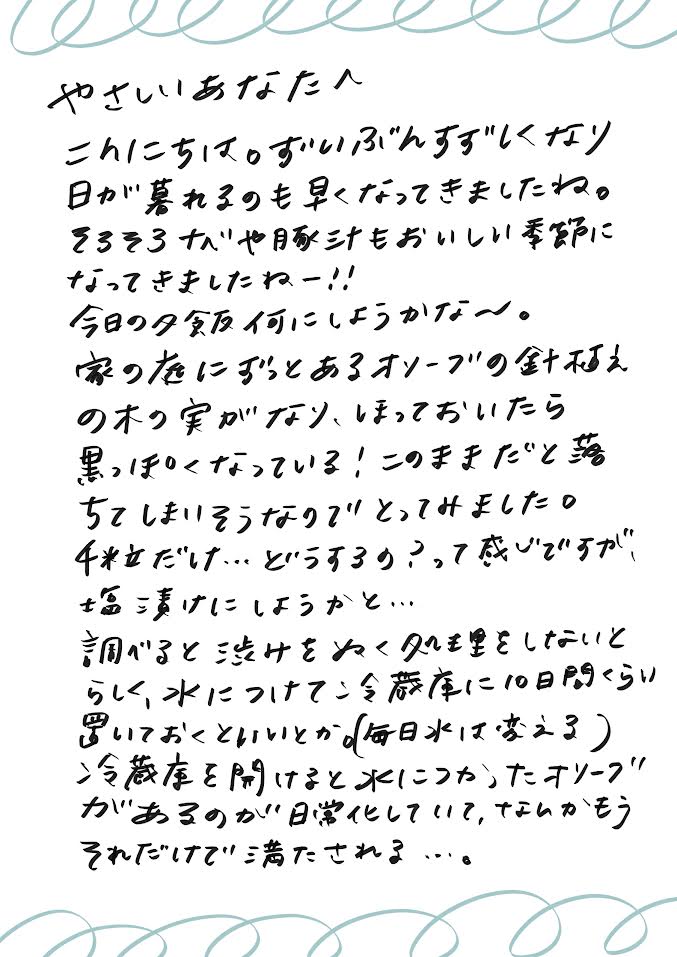 やさしいあなたへ
こんにちは。ずいぶんすずしくなり
日が暮れるのも早くなってきましたね。
そろそろナベや豚汁もおいしい季節に
なってきましたねー!!
今日の夕飯何にしようかな〜。
家の庭にずっとあるオリーブの鉢植え
の木の実がなり、ほっておいたら
黒っぽくなっている!このままだと落
ちてしまいそうなのでとってみました。
4粒だけ…どうするの?って感じですが、
塩漬けにしようかと…
調べると渋みをぬく処理をしないと
らしく、水につけて冷蔵庫に10日間くらい
置いておくといいとか。(毎日水は変える)
冷蔵庫を開けると水につかったオリーブ
があるのが日常化していて、なんかもう
それだけで満たされる…。